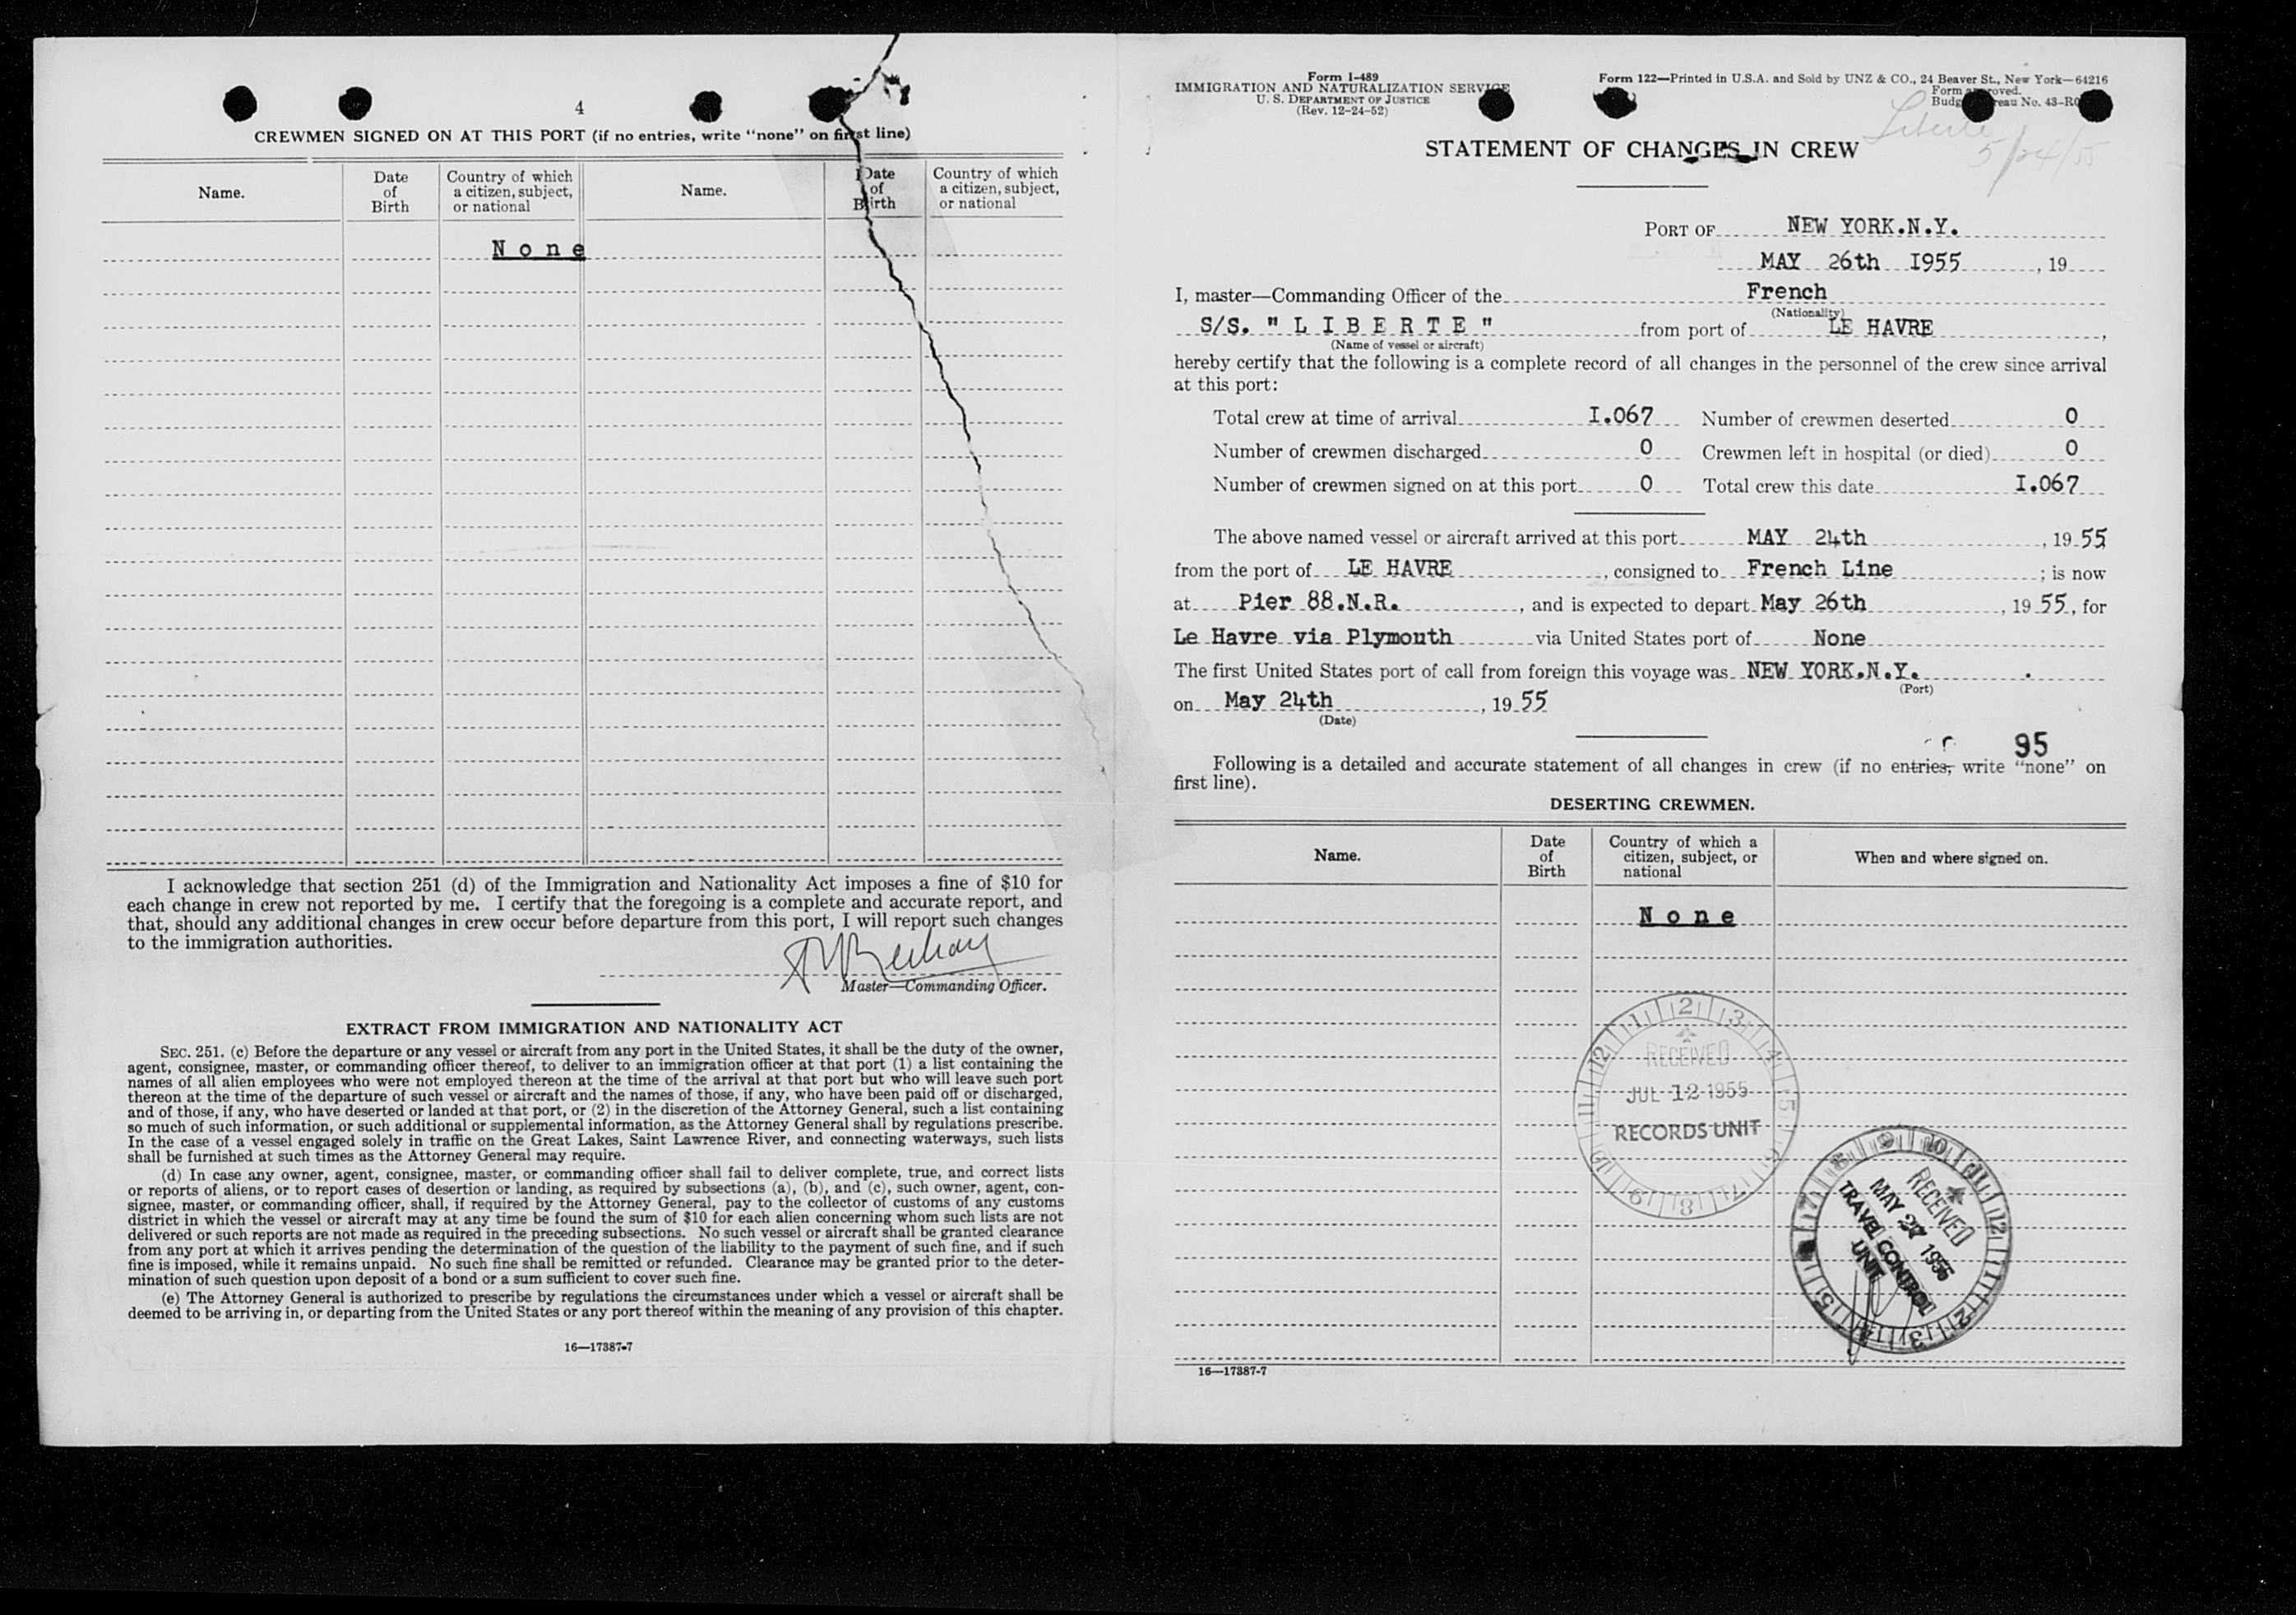 4
CREWMEN SIGNED ON AT THIS PORT (if no entries, write "none" on first line)
Name. Date of Birth Country of which a citizen, subject, or national Name. Date of Birth Country of which a citizen, subject, or national
None
I acknowledge that section 251 (d) of the Immigration and Nationality Act imposes a fine of $10 for
each change in crew not reported by me. I certify that the foregoing is a complete and accurate report, and
that, should any additional changes in crew occur before departure from this port, I will report such changes
to the immigration authorities.
Master—Commanding Officer.
EXTRACT FROM IMMIGRATION AND NATIONALITY ACT
SEC. 251. (c) Before the departure or any vessel or aircraft from any port in the United States, it shall be the duty of the owner,
agent, consignee, master, or commanding officer thereof, to deliver to an immigration officer at that port (1) a list containing the
names of all alien employees who were not employed thereon at the time of the arrival at that port but who will leave such port
thereon at the time of the departure of such vessel or aircraft and the names of those, if any, who have been paid off or discharged,
and of those, if any, who have deserted or landed at that port, or (2) in the discretion of the Attorney General, such a list containing
so much of such information, or such additional or supplemental information, as the Attorney General shall by regulations prescribe.
In the case of a vessel engaged solely in traffic on the Great Lakes, Saint Lawrence River, and connecting waterways, such lists
shall be furnished at such times as the Attorney General may require.
(d) In case any owner, agent, consignee, master, or commanding officer shall fail to deliver complete, true, and correct lists
or reports of aliens, or to report cases of desertion or landing, as required by subsections (a), (b), and (c), such owner, agent, con-
signee, master, or commanding officer, shall, if required by the Attorney General, pay to the collector of customs of any customs
district in which the vessel or aircraft may at any time be found the sum of $10 for each alien concerning whom such lists are not
delivered or such reports are not made as required in the preceding subsections. No such vessel or aircraft shall be granted clearance
from any port at which it arrives pending the determination of the question of the liability to the payment of such fine, and if such
fine is imposed, while it remains unpaid. No such fine shall be remitted or refunded. Clearance may be granted prior to the deter-
mination of such question upon deposit of a bond or a sum sufficient to cover such fine.
(e) The Attorney General is authorized to prescribe by regulations the circumstances under which a vessel or aircraft shall be
deemed to be arriving in, or departing from the United States or any port thereof within the meaning of any provision of this chapter.
16—17387-7
Form I-489
IMMIGRATION AND NATURALIZATION SERVICE
U. S. DEPARTMENT OF JUSTICE
(Rev. 12-24-52)
Form 122—Printed in U.S.A. and Sold by UNZ & CO., 24 Beaver St., New York—64216
Form approved.
Budget Bureau No. 43-R
Liberte
5/24/55
STATEMENT OF CHANGES IN CREW
PORT OF NEW YORK.N.Y.
MAY 26th 1955, 19
I, master—Commanding Officer of the French
(Nationality)
S/S. " L I B E R T E " from port of LE HAVRE,
(Name of vessel or aircraft)
hereby certify that the following is a complete record of all changes in the personnel of the crew since arrival
at this port:
Total crew at time of arrival I.067 Number of crewmen deserted 0
Number of crewmen discharged 0 Crewmen left in hospital (or died) 0
Number of crewmen signed on at this port 0 Total crew this date I.067
The above named vessel or aircraft arrived at this port MAY 24th, 19 55
from the port of LE HAVRE, consigned to French Line; is now
at Pier 88.N.R., and is expected to depart May 26th, 19 55, for
Le Havre via Plymouth via United States port of None
The first United States port of call from foreign this voyage was NEW YORK.N.Y.
(Port)
on May 24th, 19 55
(Date)
95
Following is a detailed and accurate statement of all changes in crew (if no entries, write "none" on
first line).
DESERTING CREWMEN.
Name. Date of Birth Country of which a citizen, subject, or national When and where signed on.
None
RECEIVED
JUL 12 1955
RECORDS UNIT
RECEIVED
MAY 27 1955
TRAVEL CONTROL
UNIT
16—17387-7